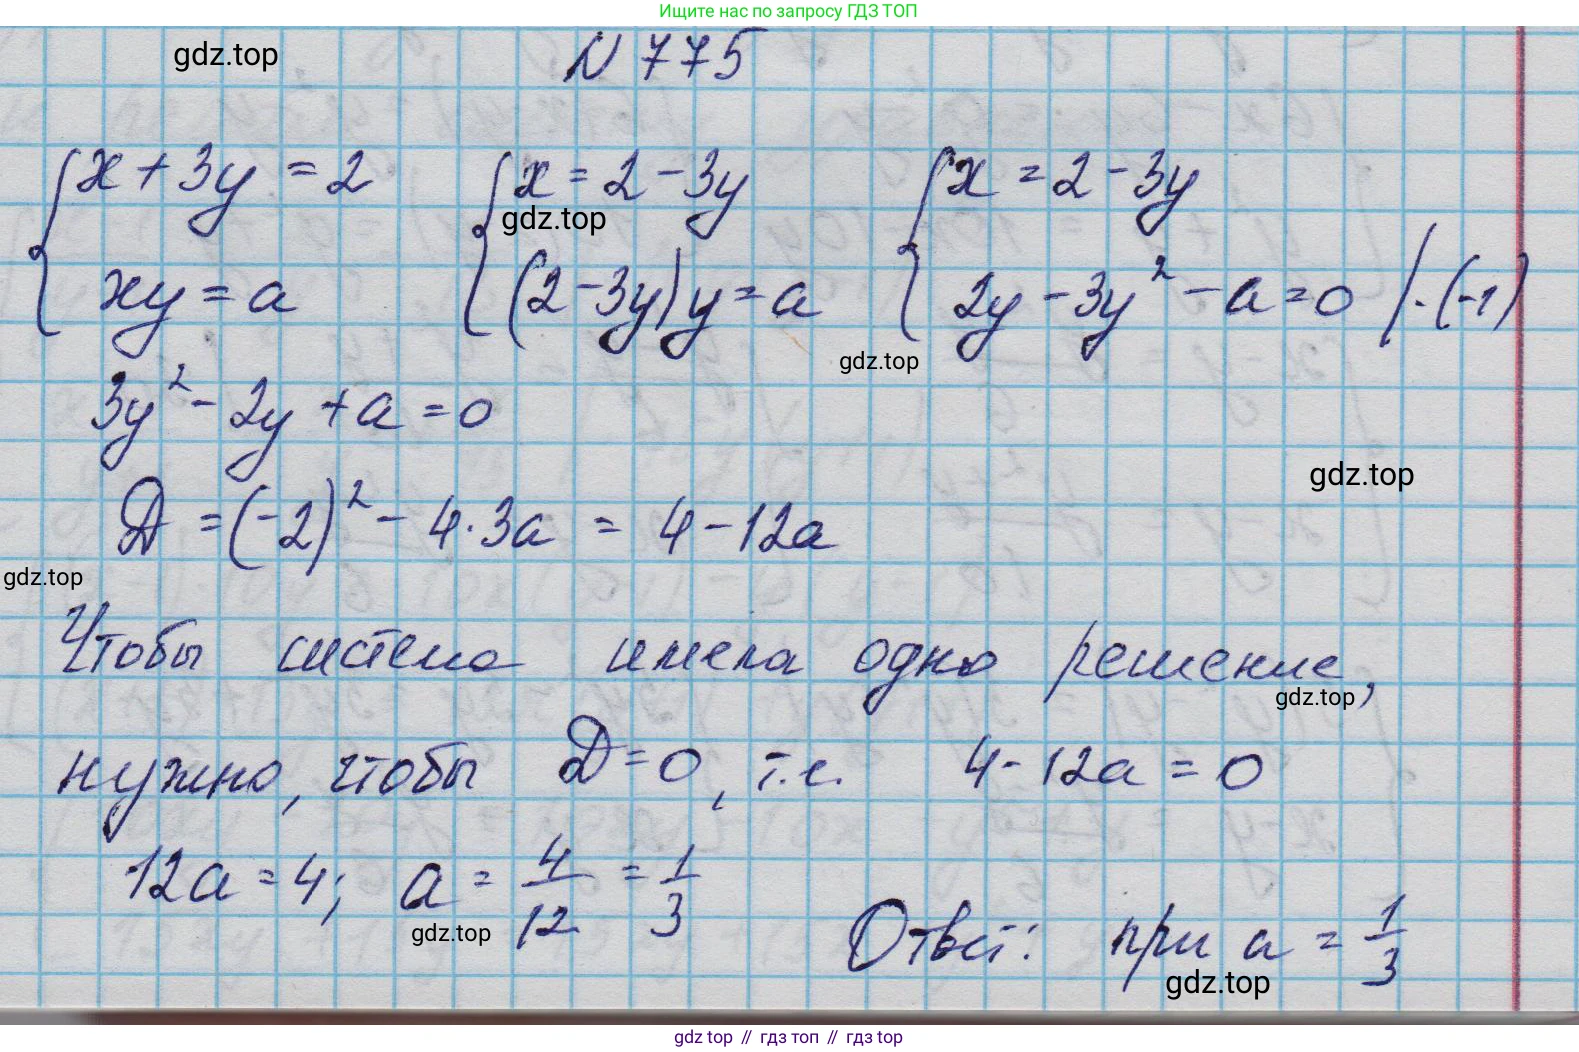 Ищите нас по запросу ГДЗ ТОП
gdz.top
N 775
{ x + 3y = 2 { x = 2 - 3y { x = 2 - 3y
gdz.top
xy = a (2 - 3y)y = a 2y - 3y² - a = 0 | · (-1)
gdz.top
3y² - 2y + a = 0
gdz.top
D = (-2)² - 4 · 3a = 4 - 12a
gdz.top
Чтобы система имела одно решение,
gdz.top
нужно, чтобы D = 0, т.е. 4 - 12a = 0
12a = 4; a = 4/12 = 1/3
gdz.top
Ответ: при a = 1/3
gdz.top
gdz top // гдз топ // гдз top